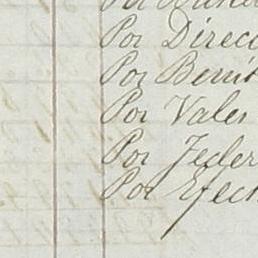 Por
Por Direcc
Por Benit
Por Vales
Por Feder
Por Efect